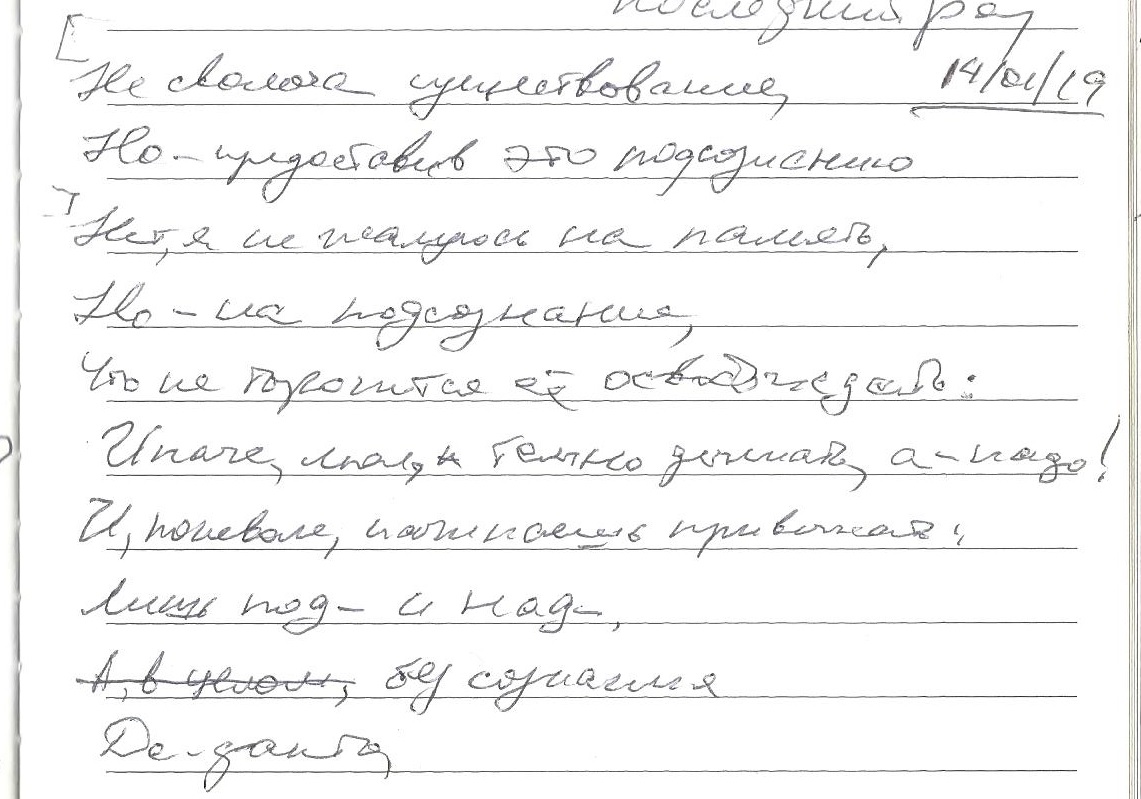 последний раз
[Не сволоча существование, 14/01/19
Но – предоставив это подсознанию]
Нет, я не жалуюсь на память,
Но – на подсознание,
Что не торопится её
Иначе, мол, темно думать, а – надо!
И, поневоле, начинаешь привыкать:
Лишь под- и над-,
А, в целом, без сознания
Де-факто,